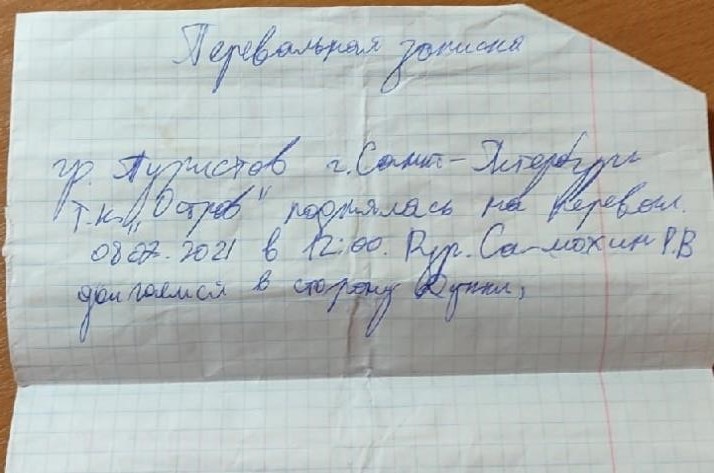 Перевальная записка
гр. Туристов г. Санкт-Петербург
Т.к. "Остров" поднялась на перевал.
08.07.2021 в 12:00. Рур. Самохин Р.В
двигаемся в сторону